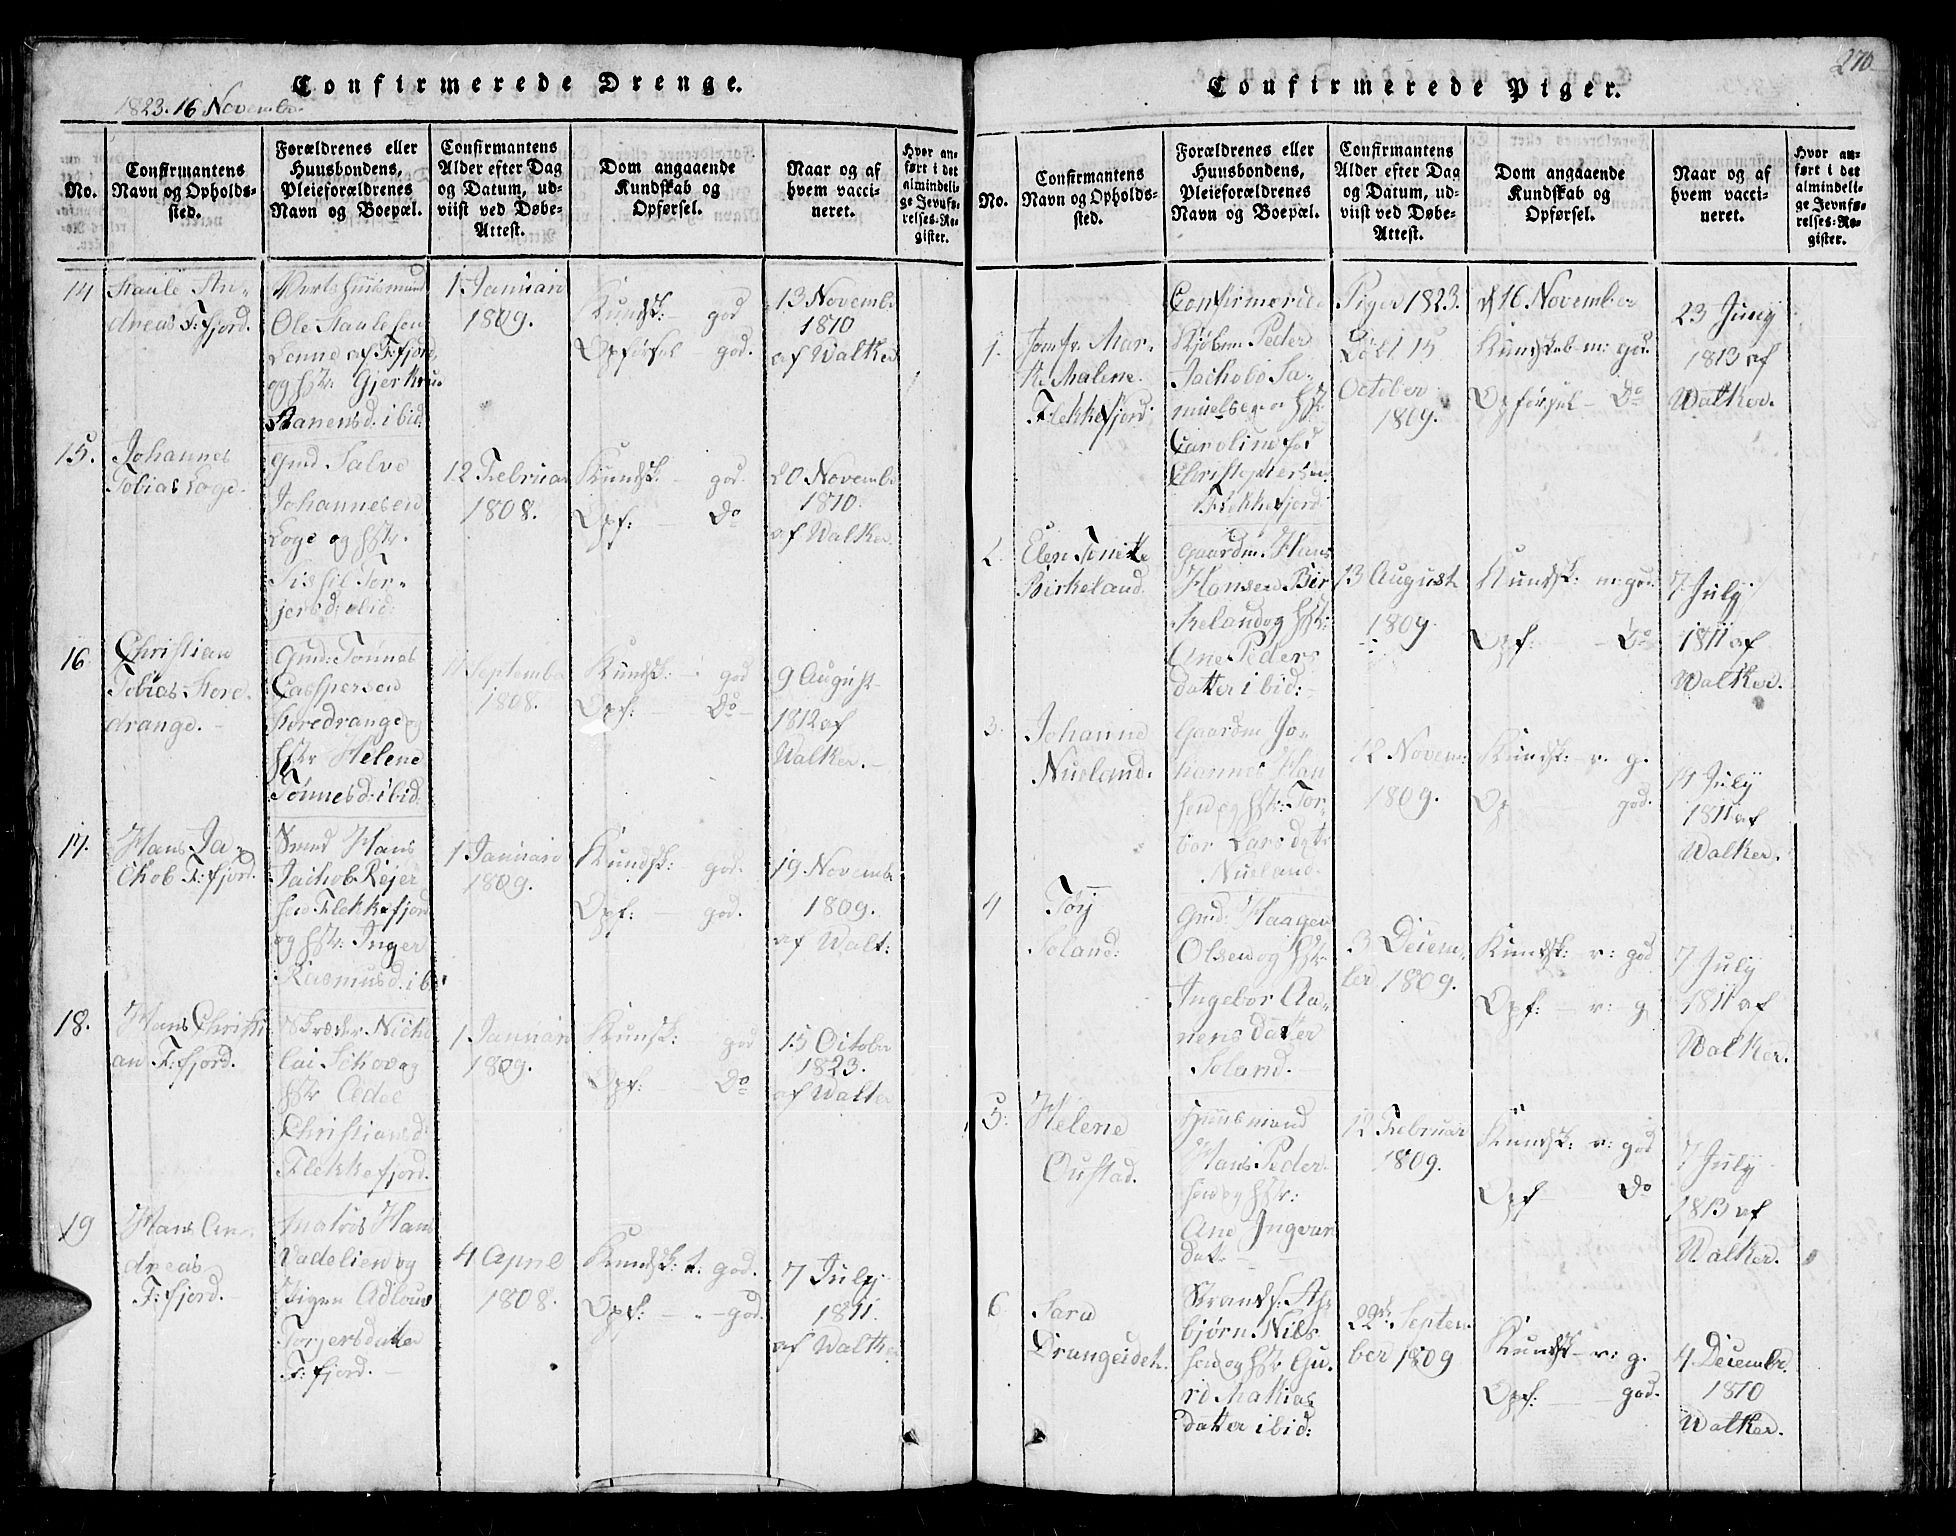 Confirmerede Drenge.
1823. 16 Novembr.
No.
Confirmantens
Navn og Opholds-
sted.
Forældrenes eller
Huusbondens,
Pleieforældrenes
Navn og Boepæl.
Confirmantens
Alder efter Dag
og Datum, ud-
viist ved Døbe-
Attest.
Dom angaaende
Kundskab og
Opførsel.
Naar og af
hvem vacci-
neret.
Hvor an-
ført i det
almindeli-
ge Jevnfø-
relses-Re-
gister.
14
Staale An-
dreas F:fjord.
Huusmand
Ole Staalesen
Lenne af F:fjord
og hstr: Gjertru
Aanensd. ibid.
1 Januari
1809.
Kundsk:– god
Opførsel – god.
13 Novembr
1810
af Walker
15.
Johannes
Tobias Loge.
Gmd Salve
Johannesen
Loge og hstr.
Sissil Tor-
jersd. ibid:
12 Februar
1808.
Kundsk. – god.
Opf: – Do
20 Novembr
1810.
af Walker.
16.
Christian
Tobias Store
drange. –
Gmd: Tønnes
Caspersen
Storedrange og
hstr Helene
Tønnesd. ibid.
11 September
1808.
Kundsk: – god
Opf: – Do
9 August
1812 af
Walker. –
17.
Hans Ja-
chob F:fjord.
Smed Hans
Jachob Rejer
sen Flekkefjord
og hstr: Inger
Rasmusd. ib:
1 Januari
1809.
Kundsk: god.
Opf: – god.
19 Novembr
1809.
af Walk:
18.
Hans Christi
an F:fjord.
Skræder Nicho
lai Schov og
hstr Aedel
Christiansd.
Flekkefjord.
1 Januari
1809.
Kunsk: god
Opf: – Do
15 October
1823.
af Walker
19
Hans An-
dreas
F:fjord.
Matros Hans
Vadelien og
Pigen Adlou
Torjersdatter
F:fjord. –
4 April
1808.
Kundsk: t: god.
Opf: – god.
7 July
1811.
af Walker
Confirmerede Piger.
270
No.
Confirmantens
Navn og Opholds-
sted.
Forældrenes eller
Huusbondens,
Pleieforældrenes
Navn og Boepæl.
Confirmantens
Alder efter Dag
og Datum, ud-
viist ved Døbe-
Attest.
Dom angaaende
Kundskab og
Opførsel.
Naar og af
hvem vacci-
neret.
Hvor an-
ført i det
almindeli-
ge Jevnfø-
relses-Re-
gister.
Confirmerede Piger 1823. d 16 November
1.
Jomfr. Mar-
the Malene.
Flekkefjord.
Kjøbm Peder
Jachob Sa-
muelsen og hstr
Caroline fød
Christophersen
Flekkefjord
Døbt 15
October
1809.
Kundskab m: god.
Opførsel – Do
23 Juny
1813 af
Walker.
2.
Elen Tonette
Birkeland.
Gaardm. Hans
Hansen Bir
keland og hstr:
Ane Peders
datter ibid: –
13 August
1809.
Kundsk: m: god.
Opf: – Do
7 July
1811 af
Walker.
3.
Johanne
Nueland.
Gaardm Jo-
hannes Han
sen og hstr: Tor
bor Larsdatr
Nueland.
12 Novem:
1809.
Kundsk: v. g.
Op god.
14 July
1811 af
Walker.
4
Tory
Soland:
Gmd: Haagen
Olsen og hstr
Ingebor Aa-
nensdatter
Soland. –
3 Decem-
ber 1809.
Kundsk: v: god
Opf: – v: g
7 July
1811 af
Walker.
5.
Helene
Oustad.
Huusmand
Hans Peder-
sen og hstr:
Ane Ingvar
dat: –
12 Februar
1809.
Kundsk: v: god
Opf – Do
7 July
1813 af
Walker.
6.
Sara
Drangeidet.
Strands: As
bjørn Nils
sen og hstr Gu
ri Mathias
datter ibid:
22de Septem
ber 1809
Kundsk – v: g.
Opf: – god.
4 Decembr.
1810
Walker.